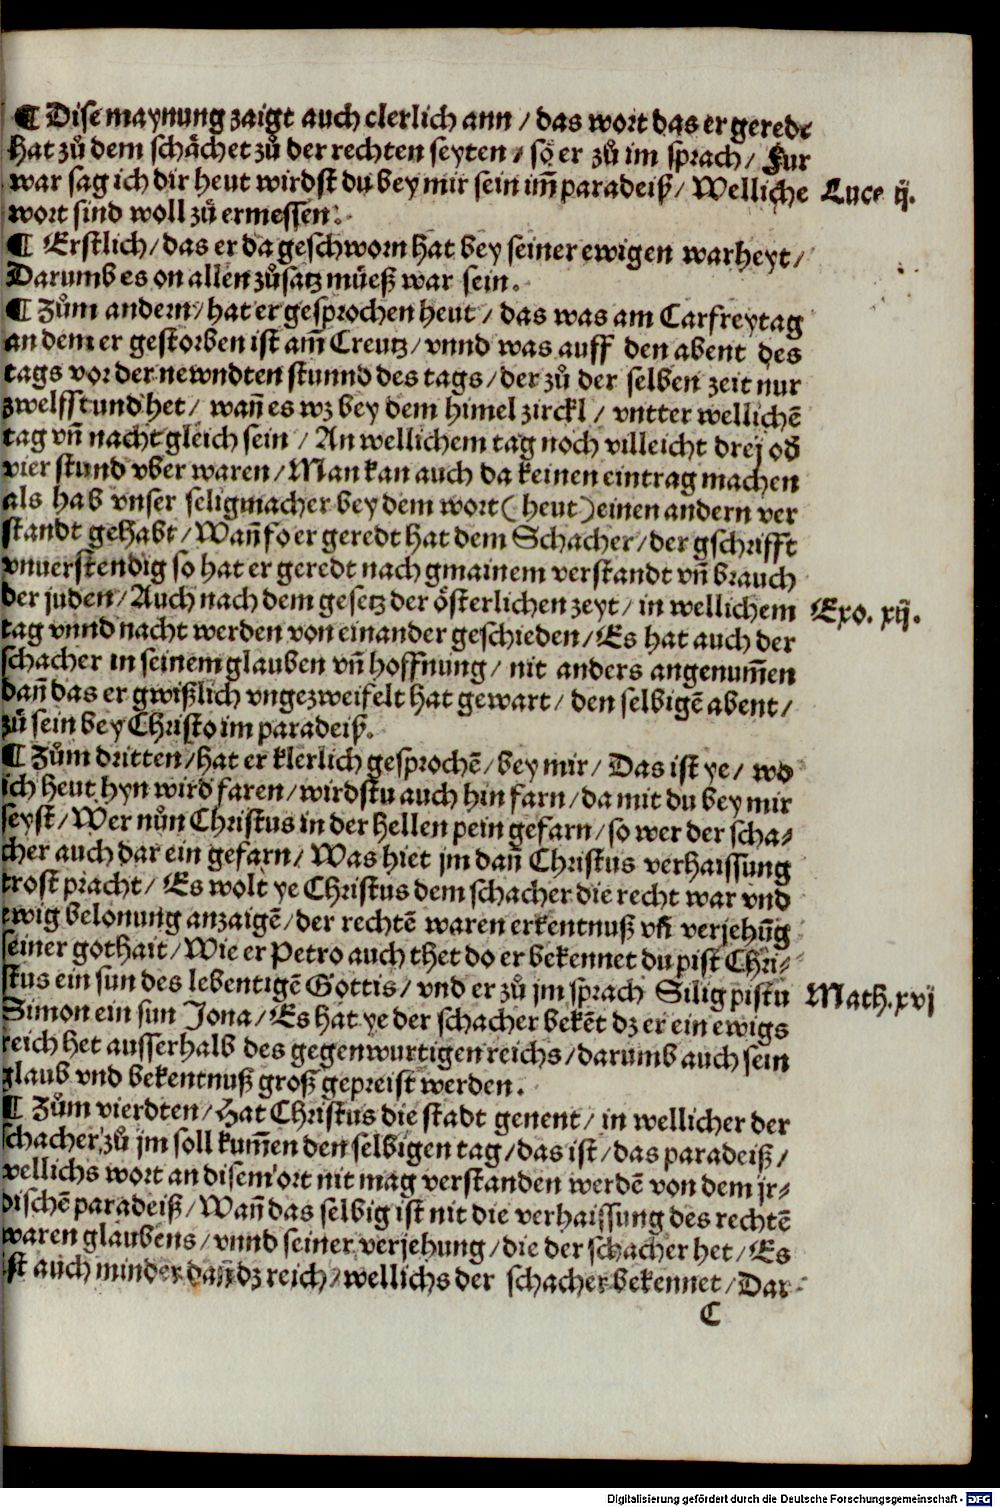 ¶ Dise maynung zaigt auch clerlich ann / das wort das er geredt
hat zů dem schächet zů der rechten seyten / so er zů im sprach / Fur
war sag ich dir heut wirdst du bey mir sein im̄ paradeiß / Welliche Luce ij.
wort sind woll zů ermessen.
¶ Erstlich / das er da geschworn hat bey seiner ewigen warheyt /
Darumb es on allen zůsatz müeß war sein.
¶ Zům andern / hat er gesprochen heut / das was am Carfreytag
an dem er gestorben ist am̄ Creutz / vnnd was auff den abent des
tags vor der newndten stunnd des tags / der zů der selben zeit nur
zwelff stund het / wan̄ es wz bey dem himel zirckl / vntter wellichē
tag vn̄ nacht gleich sein / An wellichem tag noch villeicht drej od̄
vier stund vber waren / Man kan auch da keinen eintrag machen
als hab vnser seligmacher bey dem wort ( heut ) einen andern ver
standt gehabt / Wan̄ so er geredt hat dem Schacher / der gschrifft
vnuerstendig so hat er geredt nach gmainem verstandt vn̄ brauch
der juden / Auch nach dem gesetz der österlichen zeyt / in wellichem Exo. xij.
tag vnnd nacht werden von einander geschieden / Es hat auch der
schacher in seinem glauben vn̄ hoffnung / nit anders angenum̄en
dan̄ das er gwißlich vngezweifelt hat gewart / den selbigē abent /
zů sein bey Christo im paradeiß.
¶ Zům dritten / hat er klerlich gesprochē / bey mir / Das ist ye / wo
ich heut hyn wird faren / wirdstu auch hin farn / da mit du bey mir
seyst / Wer nůn Christus in der hellen pein gefarn / so wer der scha⸗
cher auch dar ein gefarn / Was hiet jm dan̄ Christus verhaissung
trost pracht / Es wolt ye Christus dem schacher die recht war vnd
ewig belonung anzaigē / der rechtē waren erkentnuß vn̄ verjehūg
seiner gothait / Wie er Petro auch thet do er bekennet du pist Chri⸗
stus ein sun des lebentigē Gottis / vnd er zů jm sprach Silig pistu Math. xvj
Simon ein sun Jona / Es hat ye der schacher bekēt dz er ein ewigs
reich het ausserhalb des gegenwurtigen reichs / darumb auch sein
glaub vnd bekentnuß groß gepreist werden.
¶ Zům vierdten / Hat Christus die stadt genent / in wellicher der
schacher zů jm soll kum̄en den selbigen tag / das ist / das paradeiß /
wellichs wort an disem ort nit mag verstanden werdē von dem jr⸗
dischē paradeiß / Wan̄ das selbig ist nit die verhaissung des rechtē
waren glaubens / vnnd seiner verjehung / die der schacher het / Es
ist auch minder dan̄ dz reich / wellichs der schacher bekennet / Dar⸗
C
Digitalisierung gefördert durch die Deutsche Forschungsgemeinschaft - DFG